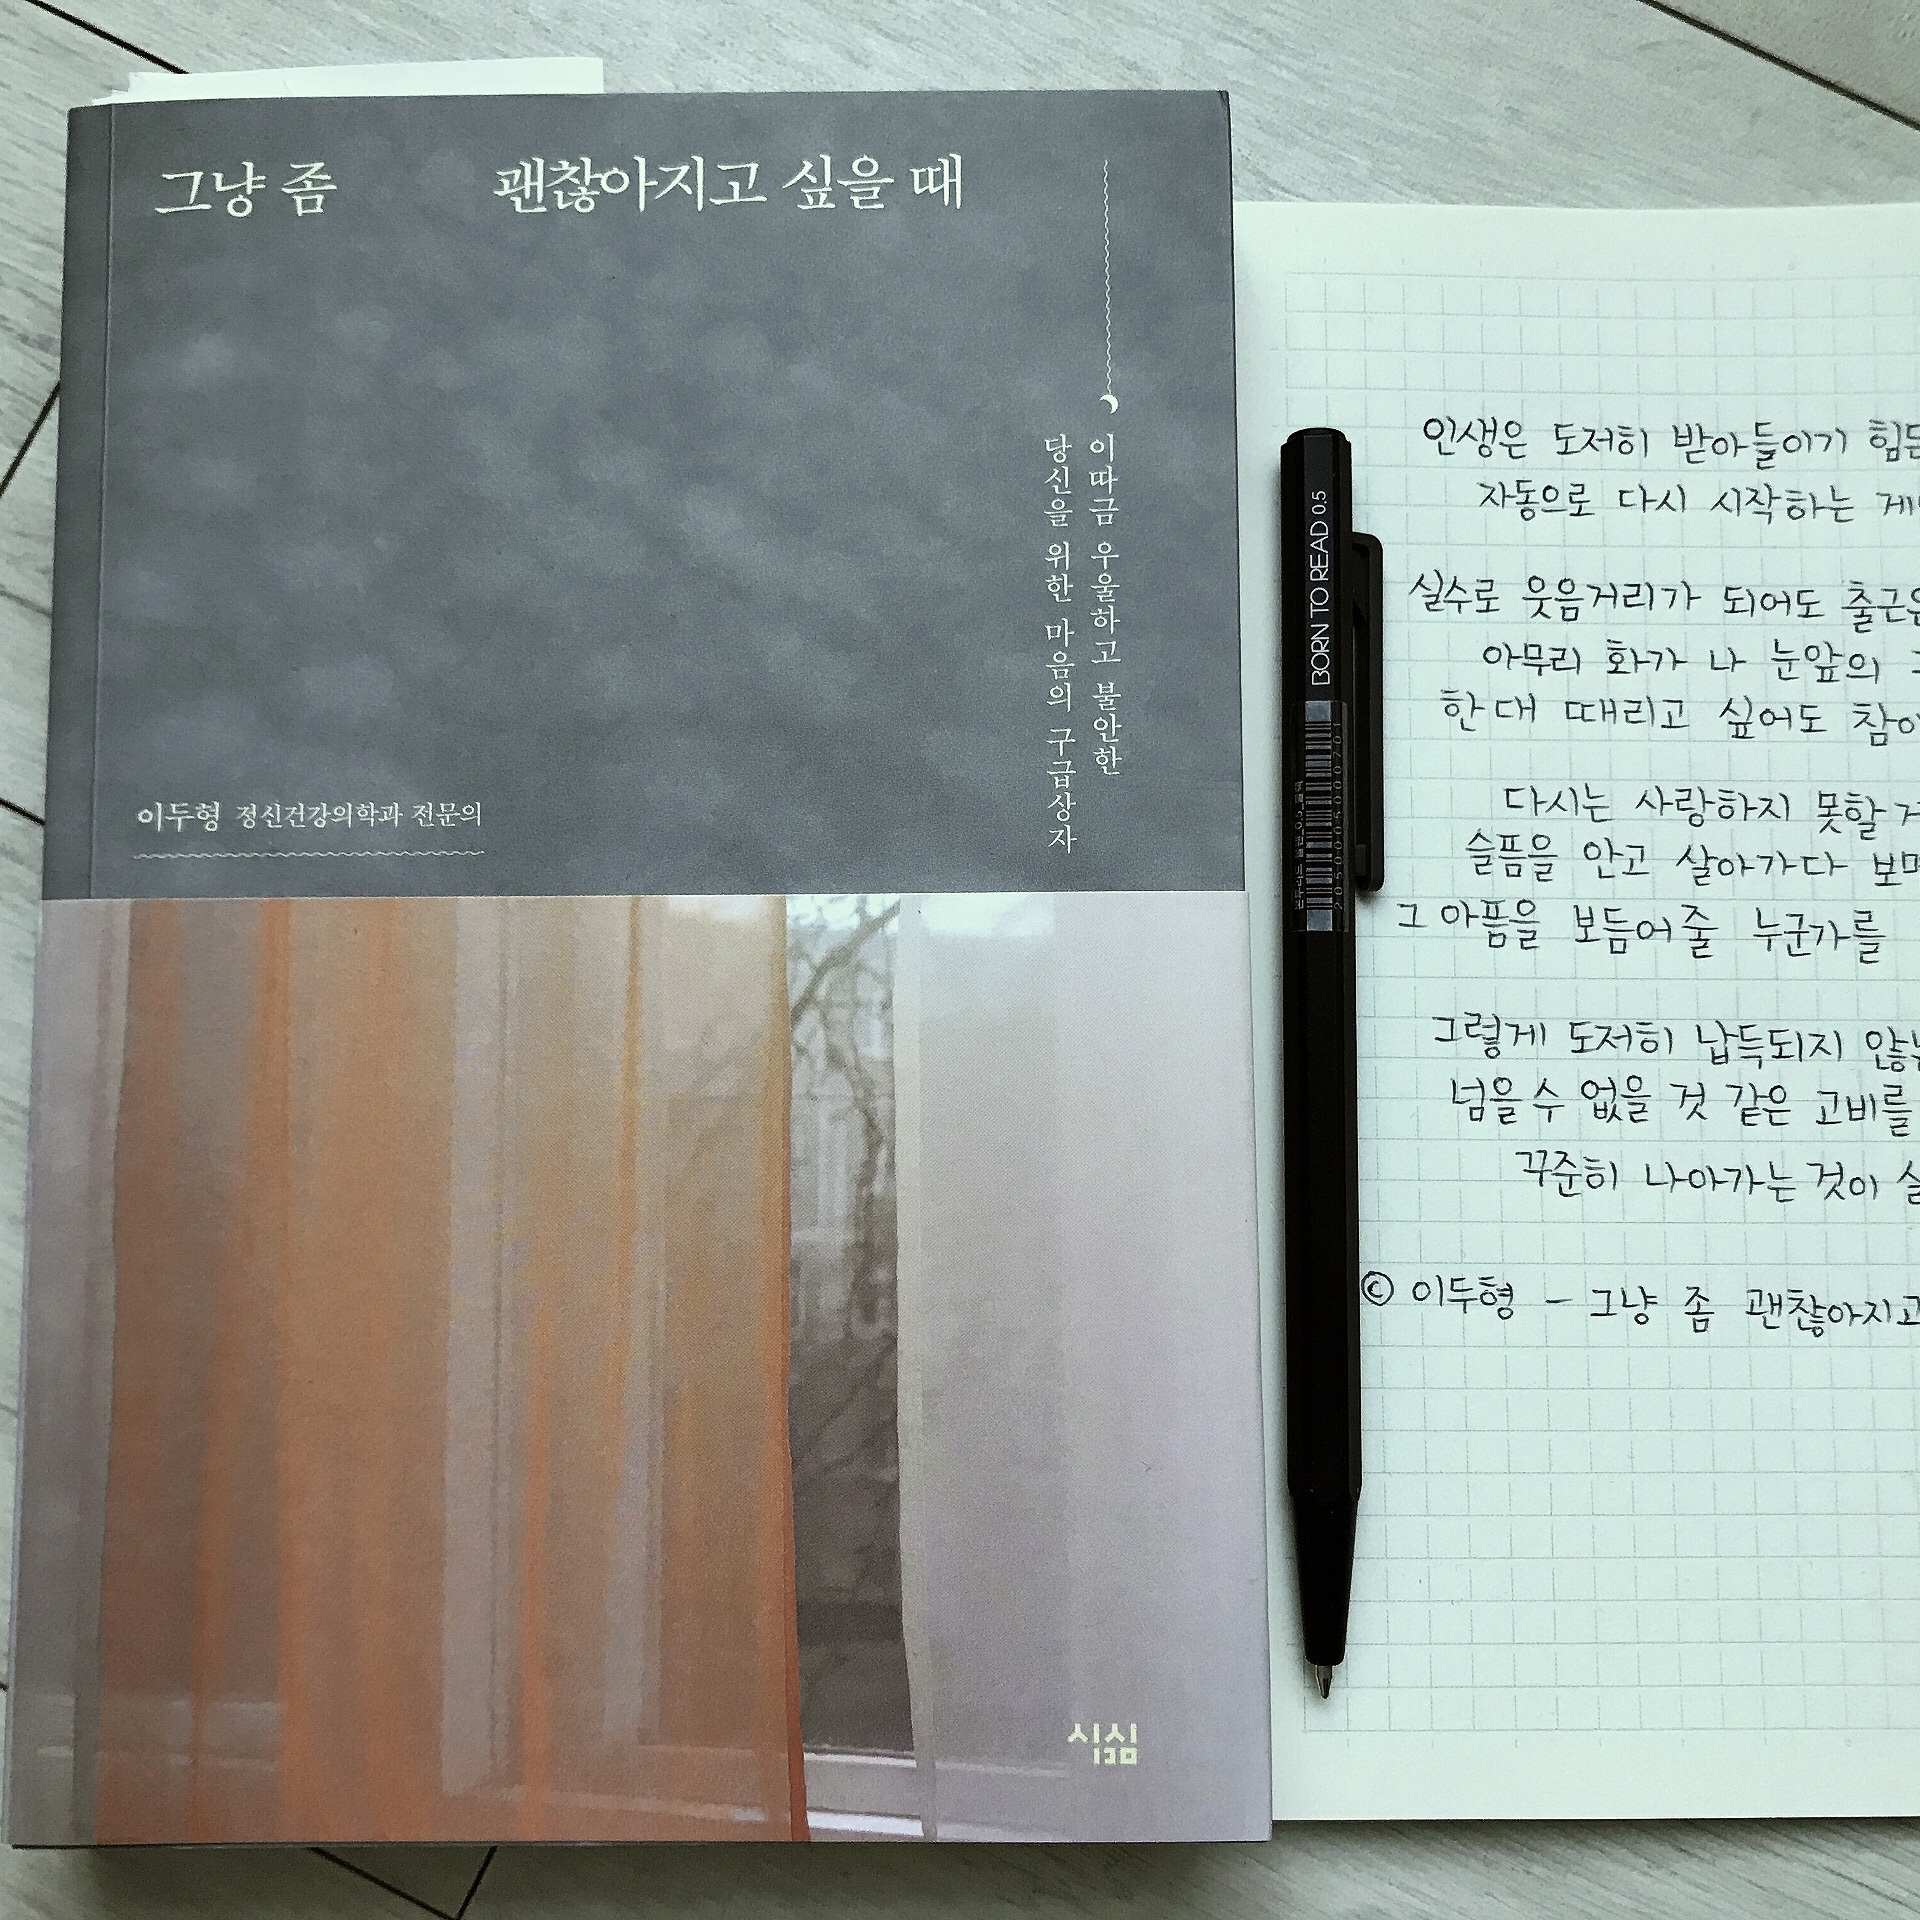 그냥 좀 괜찮아지고 싶을 때
이따금 우울하고 불안한
당신을 위한 마음의 구급상자
이두형 정신건강의학과 전문의
심심
BORN TO READ 0.5
2050000500701
인생은 도저히 받아들이기 힘든
자동으로 다시 시작하는
실수로 웃음거리가 되어도 출근은
아무리 화가 나 눈앞의
한 대 때리고 싶어도
다시는 사랑하지 못할
슬픔을 안고 살아가다
그 아픔을 보듬어 줄 누군가를
그렇게 도저히 납득되지
넘을 수 없을 것 같은 고비를
꾸준히 나아가는 것이
© 이두형 - 그냥 좀 괜찮아지고